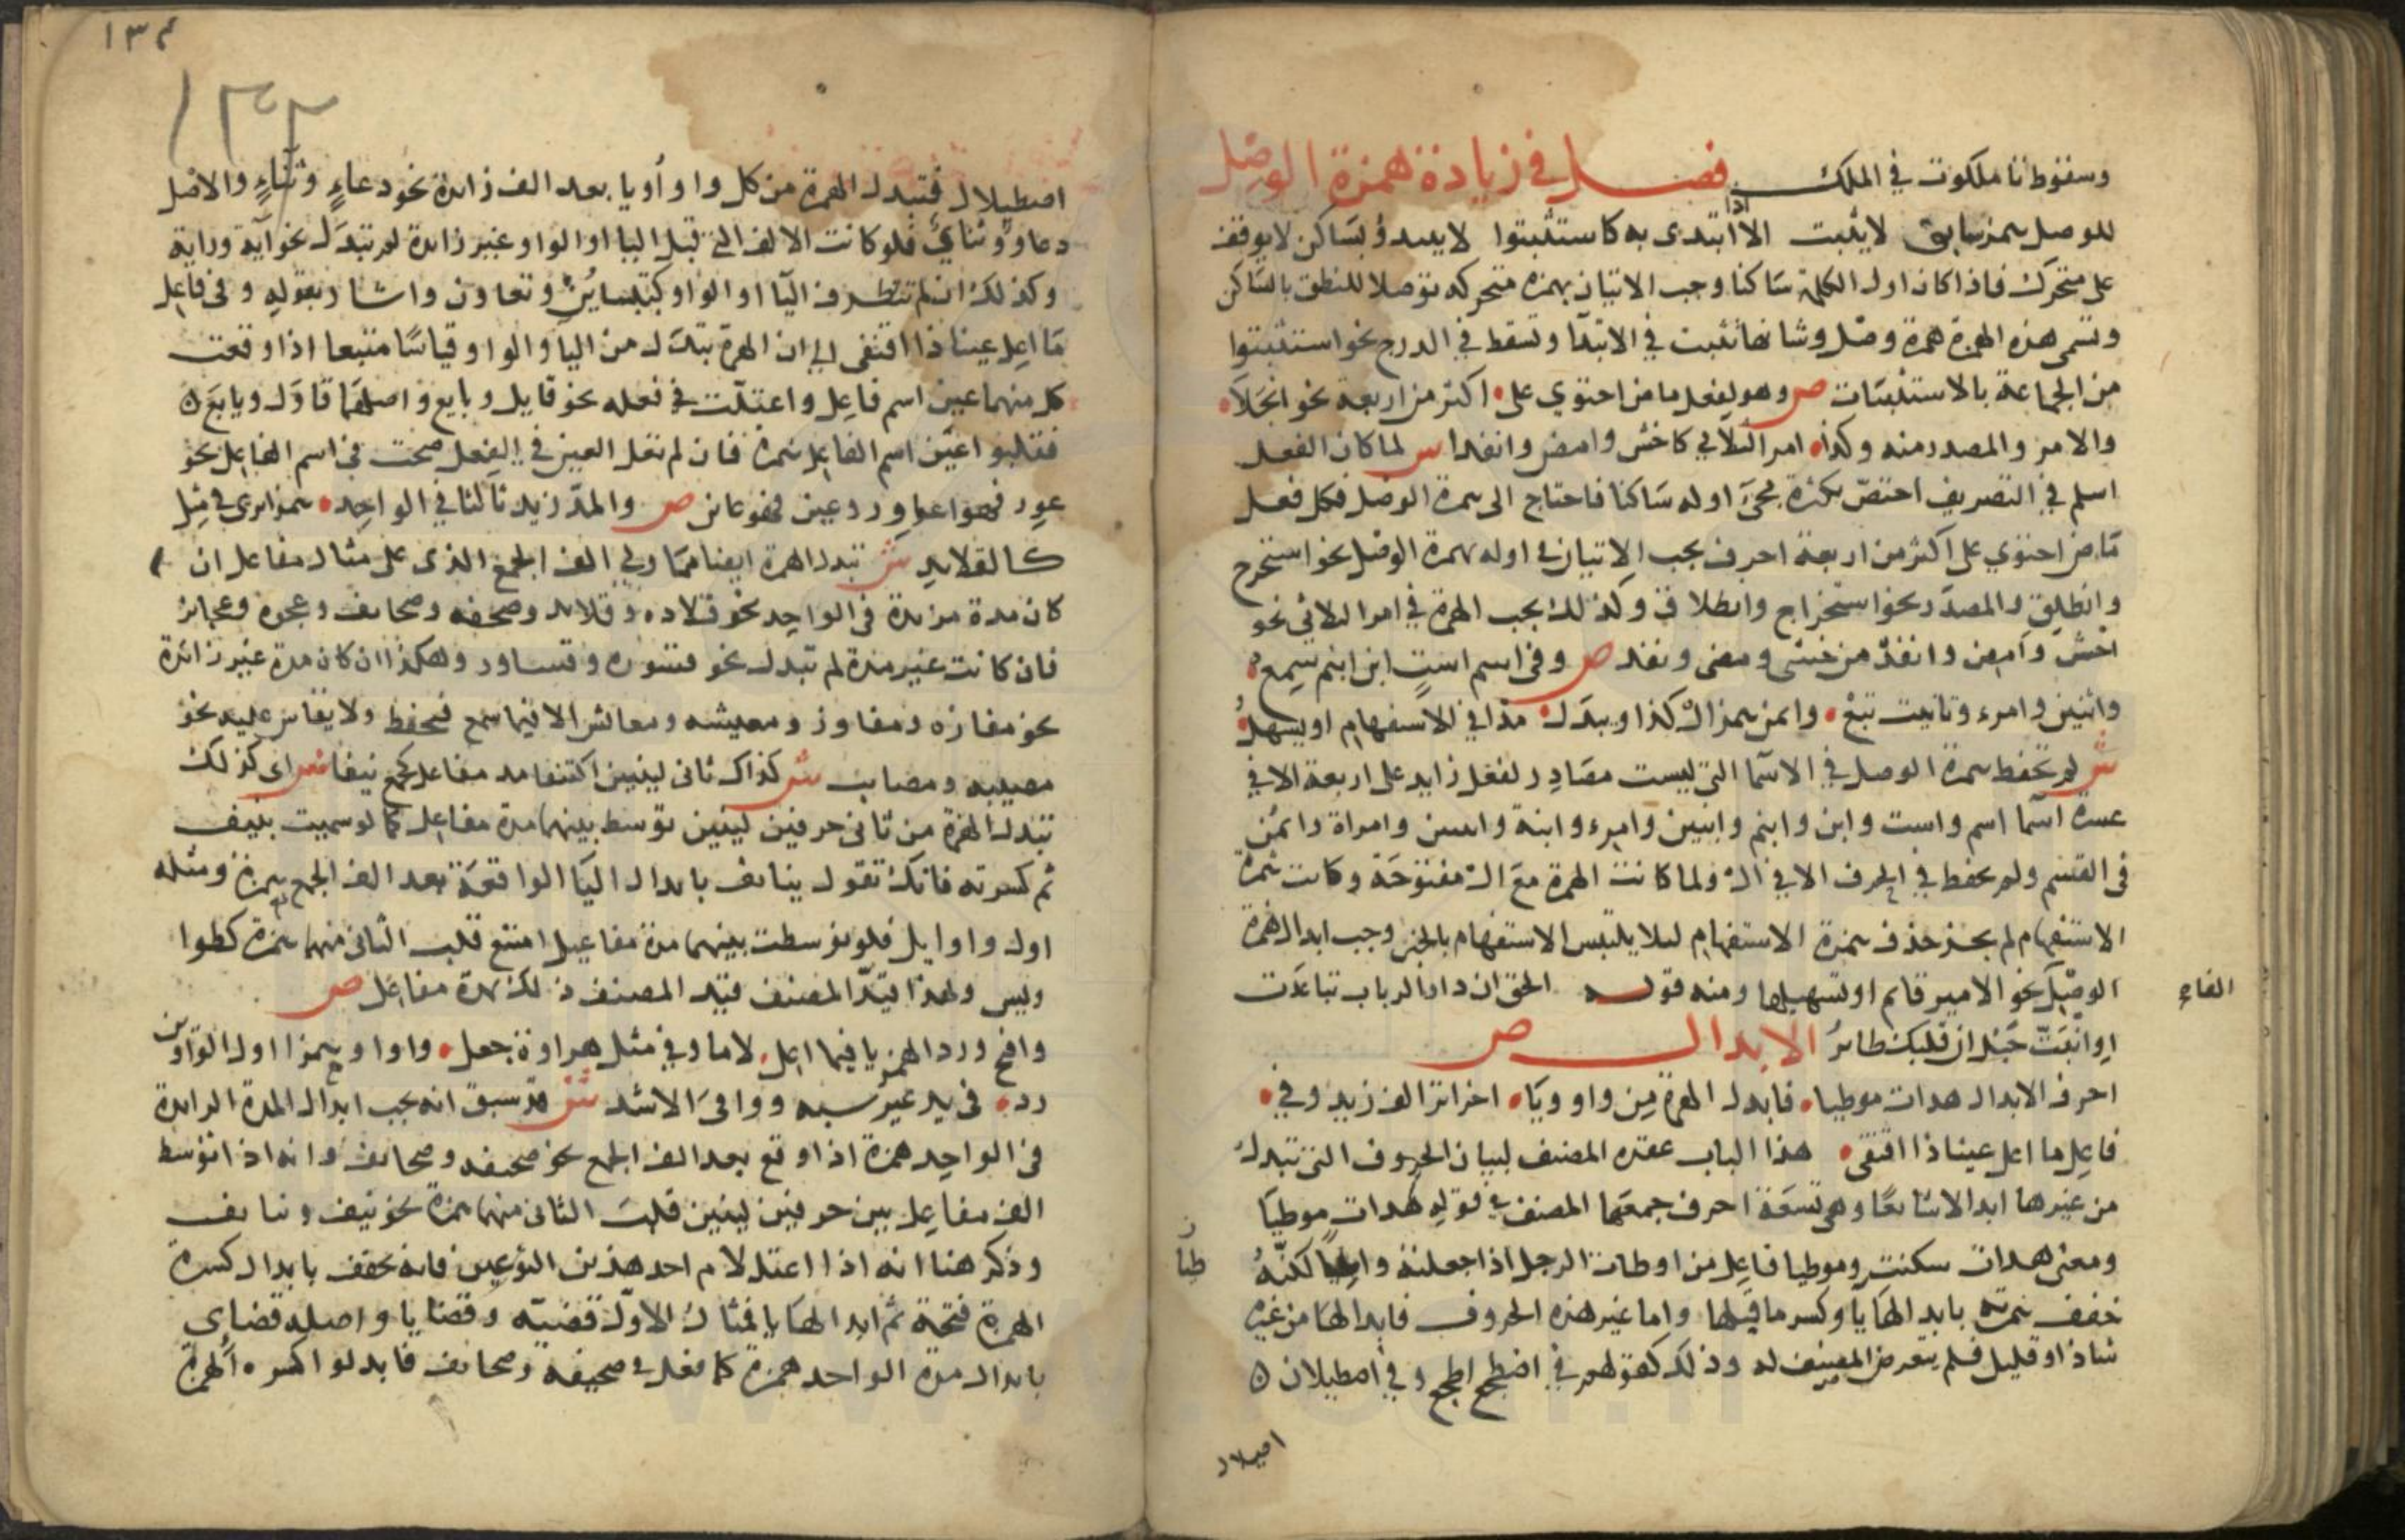 وسقوط تا ملكوت في الملك فصل في زيادة همزة الوصل
للوصل همز سابق لا يثبت الا اذا ابتدى به كاستثبتوا لا يبدؤ بساكن لا يوقف
على متحرك فاذا كان اول الكلمة ساكنا وجب الاتيان بهمزة متحركة توصلا للنطق بالساكن
وتسمى هذه الهمزة همزة وصل وشانها تثبت في الابتدا وتسقط في الدرج نحو استثبتوا
من الجماعة بالاستثبات ص وهو لفعل ماض احتوى على اكثر من اربعة نحو انجلا
والامر والمصدر منه وكذا امر الثلاثي كاخش وامض وانفذا ش لما كان الفعل
اسلم في التصريف اختص بكثرة مجئ اوله ساكنا فاحتاج الى همزة الوصل فكل فعل
ماض احتوى على اكثر من اربعة احرف يجب الاتيان في اوله بهمزة الوصل نحو استخرج
وانطلق والمصدر نحو استخراج وانطلاق وكذلك يجب الهمزة في امر الثلاثي نحو
اخش وامض وانفذ من خشى ومضى ونفذ ص وفي اسم است ابن ابنم سمع
واثنين وامرء وتانيث تبع وايمن همز ال كذا ويبدل مدا في الاستفهام او يسهل
ش لم تحفظ همزة الوصل في الاسما التي ليست مصادر لفعل زايد على اربعة الا في
عشرة اسما اسم واست وابن وابنم واثنين وامرء وابنة واثنتين وامراة وايمن
في القسم ولم يحفظ في الحرف الا في ال ولما كانت الهمزة مع ال مفتوحة وكانت همزة
الاستفهام لم يجز حذف همزة الاستفهام ليلا يلتبس الاستفهام بالخبر وجب ابدال همزة
الوصل نحو الامير قايم او تسهيلها ومنه قوله الحق ان دار الرباب تباعدت
الفاء
او انبت حبل ان قلبك طائر الابدال ص
احرف الابدال هدات موطيا فابدل الهمزة من واو ويا اخرا اثر الف زيد وفي
فاعل ما اعل عينا ذا اقتفى هذا الباب عقده المصنف لبيان الحروف التي تبدل
من غيرها ابدالا شايعا وهي تسعة احرف جمعها المصنف في قوله هدات موطيا
ومعنى هدات سكنت وموطيا فاعل من اوطات الرجل اذا جعلته وطيا لكنه
خفف همزته بابدالها يا وكسر ما قبلها واما غير هذه الحروف فابدالها من غيره
شاذ او قليل فلم يتعرض المصنف له وذلك كقولهم في اضطجع الطجع وفي اصيلان
اصيلال
١٣٤
١٣٢
اصيلال فتبدل الهمزة من كل واو او يا بعد الف زائدة نحو دعاء وثناء والاصل
دعاو وثناي فلو كانت الالف التي قبل اليا او الواو غير زائدة لم تبدل نحو آية وراية
وكذلك ان لم تتطرف اليا او الواو كتباين وتعاون واشار بقوله وفي فاعل
ما اعل عينا ذا اقتفى الى ان الهمزة تبدل من اليا والواو قياسا متبعا اذا وقعت
كل منهما عين اسم فاعل واعتلت في فعله نحو قايل وبايع واصلهما قاول وبايع
فقلبوا عين اسم الفاعل همزة فان لم تعل العين في الفعل صحت في اسم الفاعل نحو
عور فهو عاور وعين فهو عاين ص والمد زيد ثالثا في الواحد همزا يرى في مثل
كالقلايد ش تبدل الهمزة ايضا مما ولي الف الجمع الذي على مثال مفاعل ان
كان مدة مزيدة في الواحد نحو قلاده وقلايد وصحيفه وصحايف وعجوز وعجايز
فان كانت غير مدة لم تبدل نحو قسوره وقساور وهكذا ان كان مدة غير زائدة
نحو مفازه ومفاوز ومعيشه ومعائش الا فيما سمع فيحفظ ولا يقاس عليه نحو
مصيبه ومصايب ص كذاك ثاني لينين اكتنفا مد مفاعل كجمع نيفا ش اى كذلك
تبدل الهمزة من ثاني حرفين لينين توسط بينهما مدة مفاعل كما لو سميت بنيف
ثم كسرته فانك تقول نيائف بابدال اليا الواقعة بعد الف الجمع همزة ومثله
اول واوايل فلو توسطت بينهما مدة مفاعيل امتنع قلب الثاني منهما همزة كطوا
ويس ولهذا قيد المصنف ذلك بمدة مفاعل ص
وافتح ورد الهمز يا فيما اعل لاما وفي مثل هراوة جعل واوا وهمزا اول الواوين
رد في بدء غير شبه ووفي الاشد ش قد سبق انه يجب ابدال المدة الزائدة
في الواحد همزة اذا وقع بعد الف الجمع نحو صحيفه وصحايف وانه اذا توسط
الف مفاعل بين حرفين لينين قلبت الثاني منهما همزة نحو نيف ونيائف
وذكر هنا انه اذا اعتل لام احد هذين النوعين فانه يخفف بابدال كسرة
الهمزة فتحة ثم ابدالها يا فمثال الاول قضية وقضايا واصله قضاي
بابدال مدة الواحد همزة كما فعل في صحيفة وصحايف فابدلوا كسره الهمزة